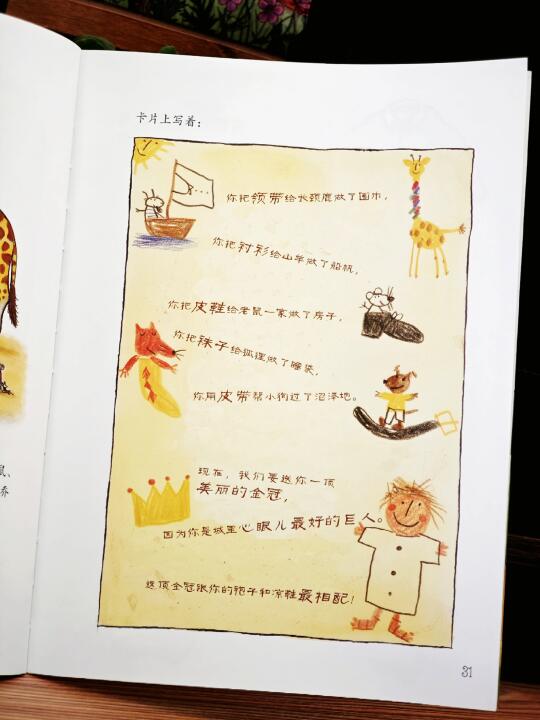 卡片上写着：
你把领带给长颈鹿做了围巾，
你把衬衫给山羊做了船帆，
你把皮鞋给老鼠一家做了房子，
你把袜子给狐狸做了睡袋，
你用皮带帮小狗过了沼泽地。
现在，我们要送你一顶
美丽的金冠，
因为你是城里心眼儿最好的巨人。
这顶金冠跟你的袍子和凉鞋最相配！
鼠、
乔
31